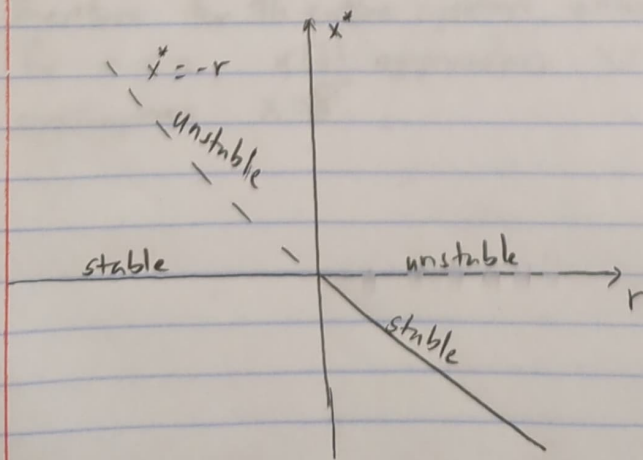 x*
x* = -r
unstable
stable
unstable
r
stable